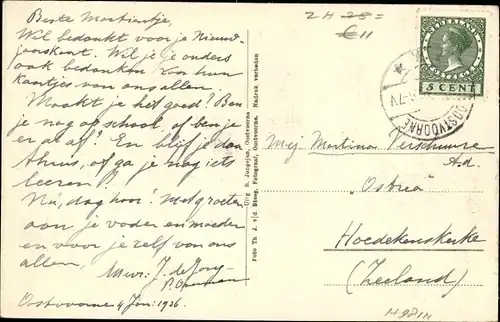 Beste Martientje,
Wel bedankt voor je Nieuw-
jaarskaart. Wil je je ouders
ook bedanken voor hun
kaartjes van ons allen.
Maakt je het goed? Ben
je nog op school, of ben je
er al af? En blijf je dan
thuis, of ga je nog iets
leeren?
Nu, dag hoor! Met groeten
aan je vader en moeder
en voor je zelf van ons
allen,
Mevr. J. de Jong-
Oostvoorne 4 Jan: 1936
Uitg. B. Jongejan, Oostvoorne
Foto Th. J. v/d. Steeg, Fotograaf, Oostvoorne. Nadruk verboden
ZH 28=
€11
NEDERLAND
5 CENT
OOSTVOORNE
Mej. Martina Verschuure
A.d.
"Ostrea"
Hoedekenskerke
(Zeeland)